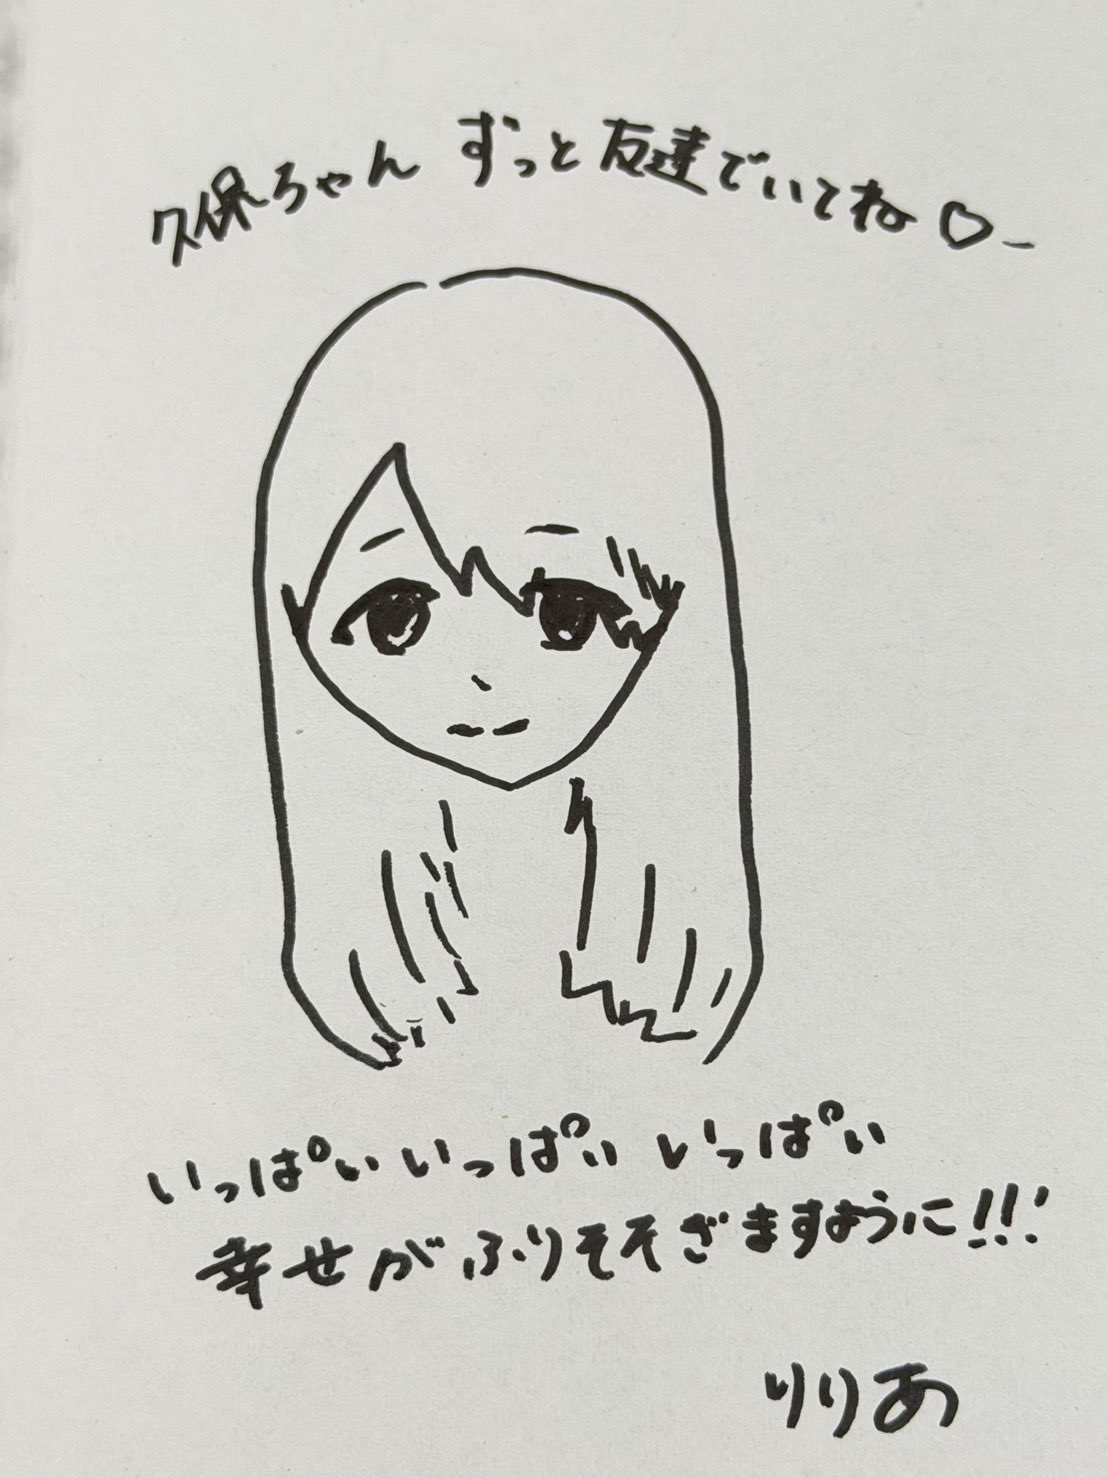 久保ちゃん ずっと友達でいてね♡
いっぱい いっぱい いっぱい
幸せがふりそそぎますように!!!
りりあ